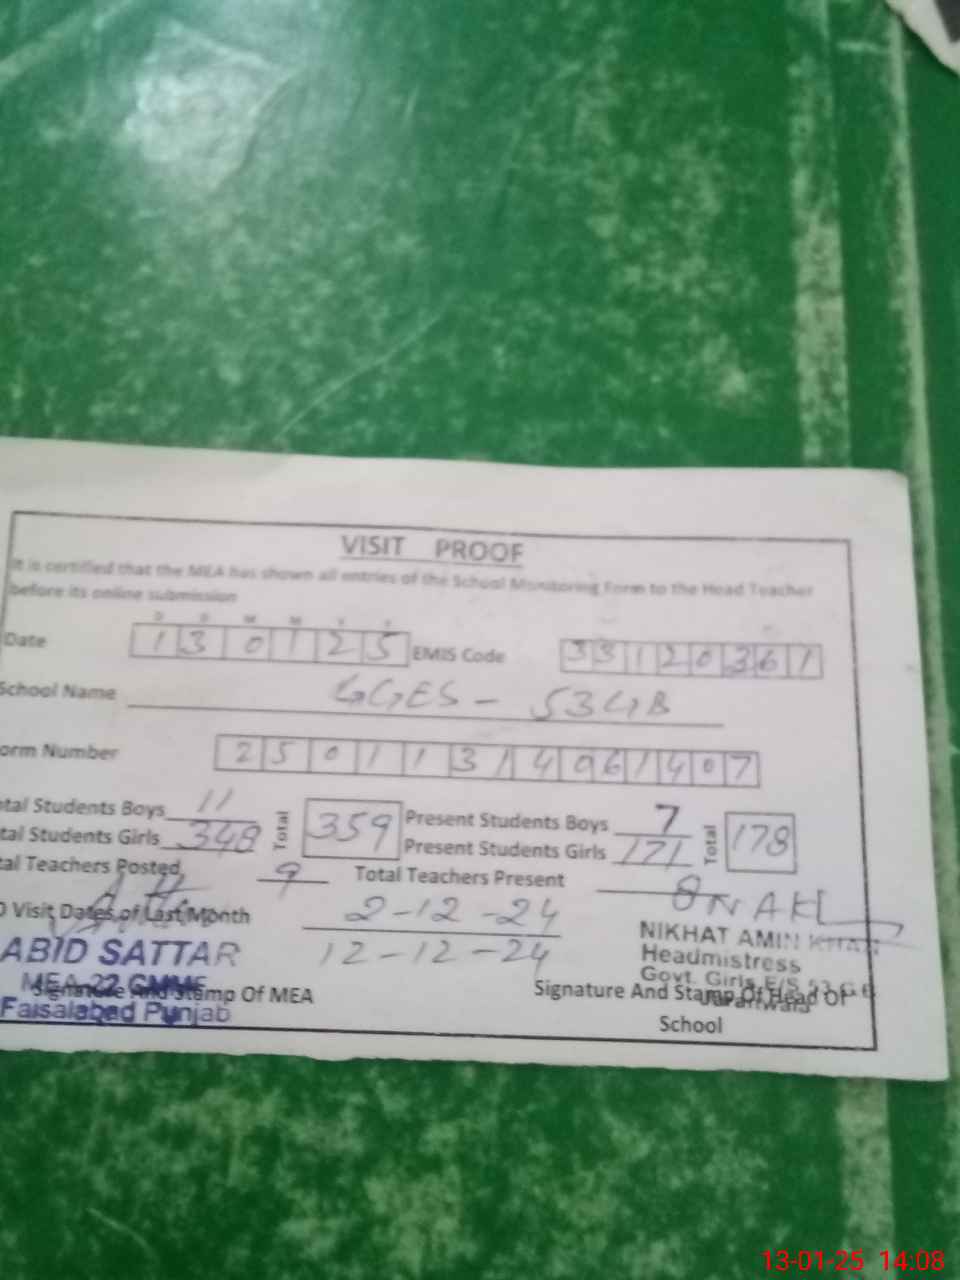 VISIT PROOF
It is certified that the MEA has shown all entries of the School Monitoring Form to the Head Teacher
before its online submission
D D M M Y Y
Date 1 3 0 1 2 5 EMIS Code 3 3 1 2 0 3 6 1
School Name GGES - 53GB
orm Number 2 5 0 1 1 3 1 4 9 6 1 4 0 7
otal Students Boys 11 Total 359 Present Students Boys 7 Total 178
tal Students Girls 348 Present Students Girls 171
tal Teachers Posted 9 Total Teachers Present 8
O Visit Dates of Last Month 2-12-24
12-12-24
ABID SATTAR
MEA-22 CMMF
Faisalabad Punjab
Signature And Stamp Of MEA
NIKHAT AMIN KHAN
Headmistress
Govt. Girls E/S 53 G B
Jaranwala
Signature And Stamp Of Head Of
School
13-01-25 14:08